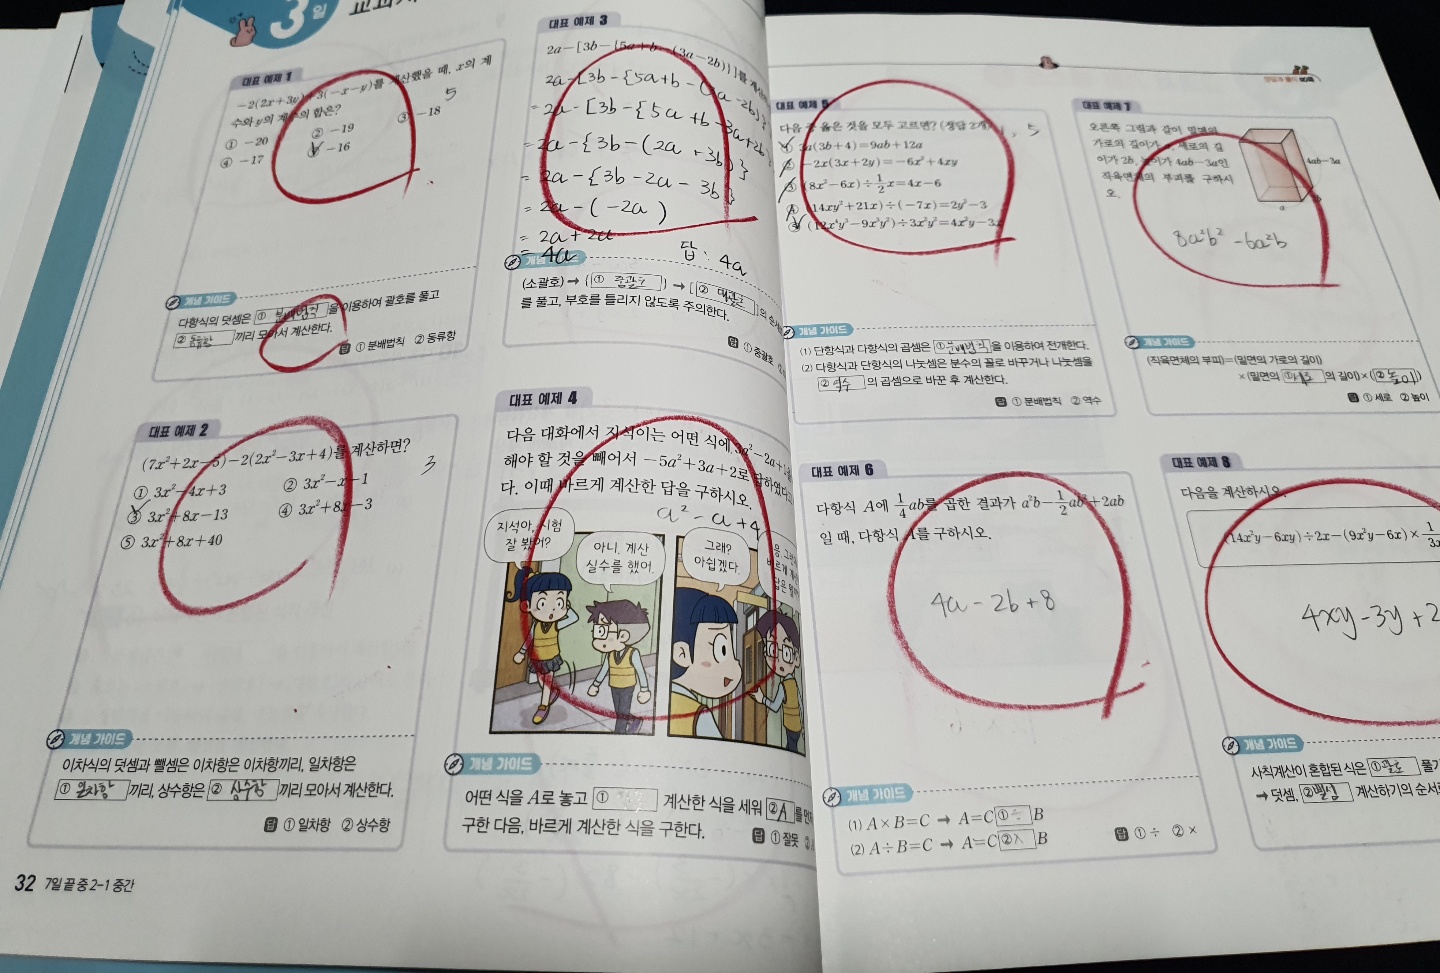 3일
대표 예제 1
-2(2x+3y)+3(-x-y)를 계산했을 때, x의 계
수와 y의 계수의 합은?
5
① -20 ② -19 ③ -18
④ -17 ⑤ -16
개념 가이드
다항식의 덧셈은 ① 분배법칙 을 이용하여 괄호를 풀고
② 동류항 끼리 모아서 계산한다.
답 ① 분배법칙 ② 동류항
대표 예제 2
(7x²+2x-5)-2(2x²-3x+4)를 계산하면?
3
① 3x²-4x+3 ② 3x²-x-1
③ 3x²+8x-13 ④ 3x²+8x-3
⑤ 3x²+8x+40
개념 가이드
이차식의 덧셈과 뺄셈은 이차항은 이차항끼리, 일차항은
① 일차항 끼리, 상수항은 ② 상수항 끼리 모아서 계산한다.
답 ① 일차항 ② 상수항
32 7일 끝 중 2-1 중간
대표 예제 3
2a-[3b-{5a+b-(3a-2b)}]를
2a-[3b-{5a+b-(3a-2b)}
=2a-[3b-{5a+b-3a+2b}
=2a-{3b-(2a+3b)}
=2a-{3b-2a-3b}
=2a-(-2a)
=2a+2a
=4a
답: 4a
개념 가이드
(소괄호) → { ① 중괄호 } → [ ② 대괄호 ]의
를 풀고, 부호를 틀리지 않도록 주의한다.
답 ① 중괄호
대표 예제 4
다음 대화에서 지석이는 어떤 식에 3a²-2a+
해야 할 것을 빼어서 -5a²+3a+2로 답하였다고
다. 이때 바르게 계산한 답을 구하시오.
a²-a+4
지석아, 시험
잘 봤어?
아니, 계산
실수를 했어.
그래?
아쉽겠다.
개념 가이드
어떤 식을 A로 놓고 ① 계산한 식을 세워 ② A 를
구한 다음, 바르게 계산한 식을 구한다.
답 ① 잘못
대표 예제 5
다음 중 옳은 것을 모두 고르면? (정답 2개) , 5
① 3a(3b+4)=9ab+12a
② -2x(3x+2y)=-6x²+4xy
③ (8x²-6x)÷1/2x=4x-6
④ (14xy²+21x)÷(-7x)=2y²-3
⑤ (12x⁴y³-9x³y²)÷3x²y²=4x²y-3x
개념 가이드
(1) 단항식과 다항식의 곱셈은 ① 분배법칙 을 이용하여 전개한다.
(2) 다항식과 단항식의 나눗셈은 분수의 꼴로 바꾸거나 나눗셈을
② 역수 의 곱셈으로 바꾼 후 계산한다.
답 ① 분배법칙 ② 역수
대표 예제 6
다항식 A에 1/4ab를 곱한 결과가 a²b-1/2ab²+2ab
일 때, 다항식 A를 구하시오.
4a-2b+8
개념 가이드
(1) A×B=C → A=C ① ÷ B
(2) A÷B=C → A=C ② × B
답 ① ÷ ② ×
대표 예제 7
오른쪽 그림과 같이 밑면의
가로의 길이가 a, 세로의 길
이가 2b, 높이가 4ab-3a인
직육면체의 부피를 구하시
오.
4ab-3a
a
8a²b²-6a²b
개념 가이드
(직육면체의 부피)=(밑면의 가로의 길이)
×(밑면의 ① 세로 의 길이)×( ② 높이 )
답 ① 세로 ② 높이
대표 예제 8
다음을 계산하시오.
(14x²y-6xy)÷2x-(9x²y-6x)×1/3x
4xy-3y+2
개념 가이드
사칙계산이 혼합된 식은 ① 괄호 풀기
→ 덧셈, ② 뺄셈 계산하기의 순서로